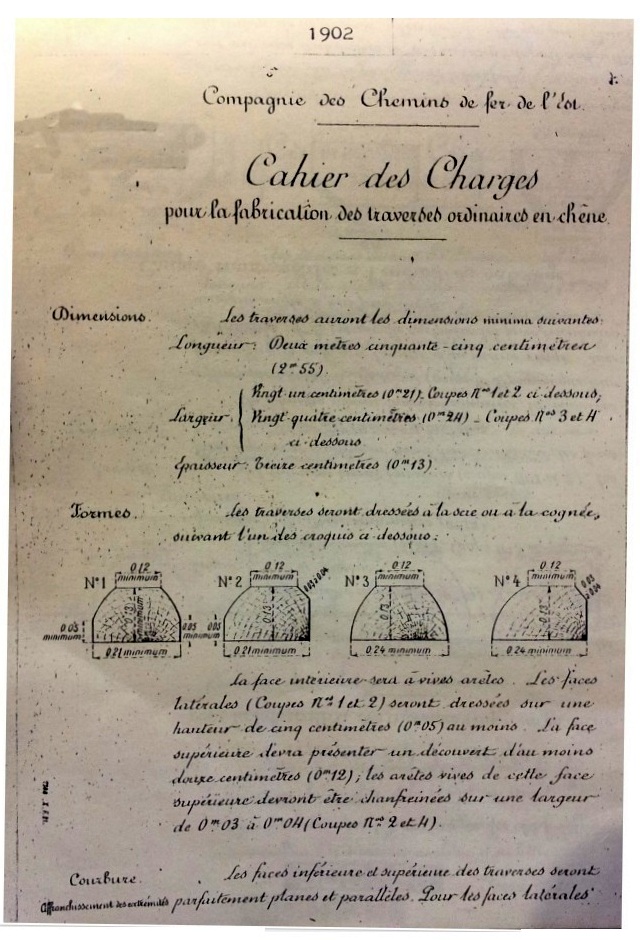 1902
Compagnie des Chemins de fer de l'Est.
Cahier des Charges
pour la fabrication des traverses ordinaires en chêne
Dimensions.
Les traverses auront les dimensions minima suivantes:
Longueur: Deux mètres cinquante-cinq centimètres
(2m55).
Largeur:
Vingt un centimètres (0m21). Coupes Nos 1 et 2 ci dessous;
Vingt-quatre centimètres (0m24) _ Coupes Nos 3 et 4
ci-dessous
Epaisseur: Treize centimètres (0m13).
Formes.
Les traverses seront dressées à la scie ou à la cognée,
suivant l'un des croquis ci dessous:
N°1 0.12 minimum 0.13 minimum 0.05 minimum 0.21 minimum
N°2 0.12 minimum 0.03 à 0.04 0.13 0.05 minimum 0.05 0.21 minimum
N°3 0.12 minimum 0.13 0.24 minimum
N°4 0.12 minimum 0.03 0.04 0.13 0.24 minimum
La face intérieure sera à vives arêtes. Les faces
latérales (Coupes Nos 1 et 2) seront dressées sur une
hauteur de cinq centimètres (0m05) au moins. La face
supérieure devra présenter un découvert d'au moins
douze centimètres (0m12); les arêtes vives de cette face
supérieure devront être chanfreinées sur une largeur
de 0m03 à 0m04 (Coupes Nos 2 et 4).
Courbure.
Affranchissement des extrémités
Les faces inférieure et supérieure des traverses seront
parfaitement planes et parallèles. Pour les faces latérales